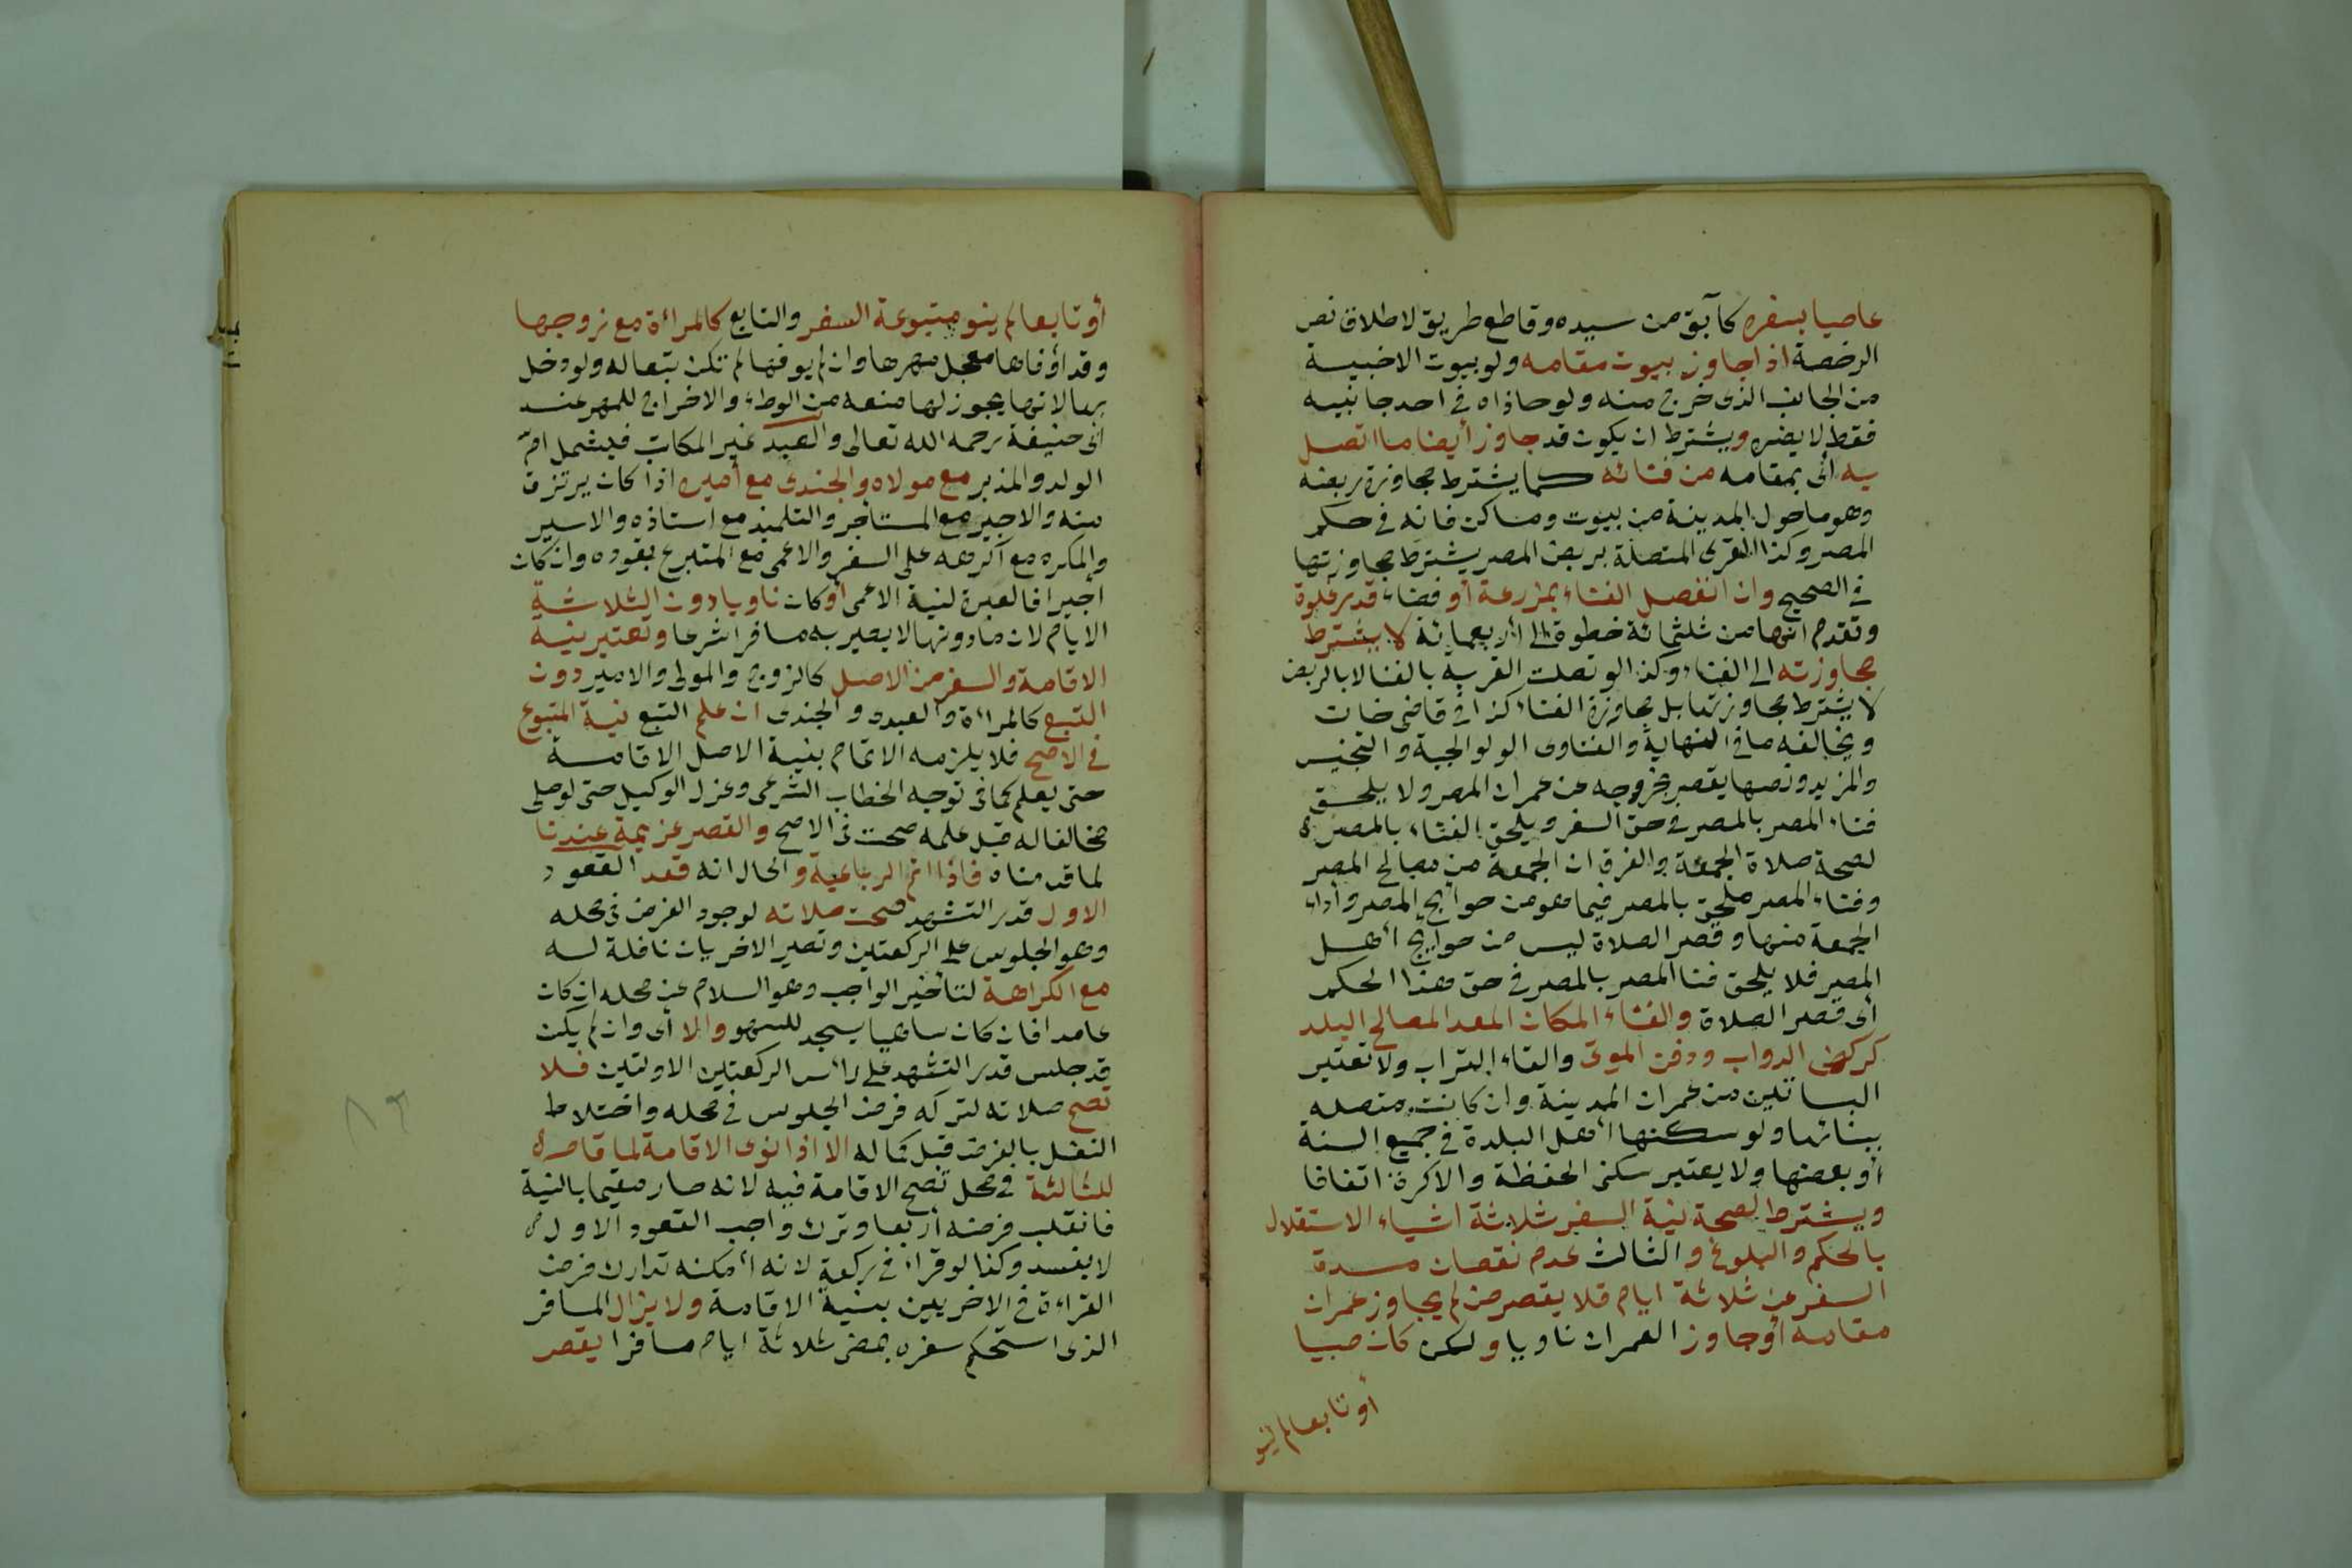 عاصيا بسفره كآبق من سيده وقاطع طريق لاطلاق نص
الرخصة اذا جاوز بيوت مقامه ولو بيوت الاخبية
من الجانب الذى خرج منه ولو حاذاه فى احد جانبيه
فقط لا يضره ويشترط ان يكون قد جاوز أيضا ما اتصل
به أى بمقامه من فنائه كما يشترط مجاوزة ربضه
وهو ماحول المدينة من بيوت ومساكن فانه فى حكم
المصر وكذا القرى المتصلة بربض المصر يشترط مجاوزتها
فى الصحيح وان انفصل الفناء بمزرعة أو فضاء قدر غلوة
وتقدم انها من ثلثمائة خطوة الى أربعمائة لا يشترط
مجاوزته الى الفناء وكذا لو تصلت القرية بالفنا لا بالربض
لا يشترط مجاوزتها بل مجاوزة الفناء كذا فى قاضى خان
ويخالفه ما فى النهاية والفتاوى الولوالجية والتجنيس
والمزيد ونصها يقصر بخروجه عن عمران المصر ولا يلحق
فناء المصر بالمصر فى حق السفر ويلحق الفناء بالمصر
لصحة صلاة الجمعة والفرق ان الجمعة من مصالح المصر
وفناء المصر ملحق بالمصر فيما هو من حوايج المصر وأداء
الجمعة منها وقصر الصلاة ليس من حوايج أهل
المصر فلا يلحق فنا المصر بالمصر فى حق هذا الحكم
أى قصر الصلاة والفناء المكان المعد لمصالح البلد
كركض الدواب ودفن الموتى والقاء التراب ولا تعتبر
البساتين من عمران المدينة وان كانت متصله
ببنائها ولو سكنها أهل البلدة فى جميع السنة
أو بعضها ولا يعتبر سكنى الحفظة والاكرة اتفاقا
ويشترط لصحة نية السفر ثلاثة اشياء الاستقلال
بالحكم والبلوغ و الثالث عدم نقصان مدة
السفر عن ثلاثة ايام فلا يقصر من لم يجاوز عمران
مقامه أو جاوز العمران ناويا ولكن كان صبيا
أو تابعا لم ينو
أو تابعا لم ينو متبوعه السفر والتابع كالمرأة مع زوجها
وقد أوفاها معجل مهرها وان لم يوفها لم تكن تبعا له ولو دخل
بها لانها يجوز لها منعه من الوطء والاخراج للمهر عند
أبى حنيفة رحمه الله تعالى والعبد غير المكاتب فيشمل ام
الولد والمدبر مع مولاه والجندى مع أميره اذا كان يرتزق
منه والاجير مع المستاجر والتلميذ مع استاذه والاسير
والمكره مع اكرهه على السفر والاعمى مع المتبرع بقوده وان كان
أجيرا فالعبرة لنية الاعمى أو كان ناويا دون الثلاثة
الايام لان مادونها لا يصير به مسافرا شرعا وتعتبر نية
الاقامة والسفر من الاصل كالزوج والمولى والامير دون
التبع كالمرأة والعبد و الجندى ان علم التبع نية المتبوع
فى الاصح فلا يلزمه الاتمام بنية الاصل الاقامة
حتى يعلم كما فى توجه الخطاب الشرعى وعزل الوكيل حتى لو صلى
مخالفا له قبل علمه صحت فى الاصح والقصر عزيمة عندنا
لما قدمناه فاذا اتم الرباعية والحال انه قعد القعود
الاول قدر التشهد صحت صلاته لوجود الفرض فى محله
وهو الجلوس على الركعتين وتصير الاخريان نافلة له
مع الكراهة لتأخير الواجب وهو السلام عن محله ان كان
عامدا فان كان ساهيا يسجد للسهو والا أى وان لم يكن
قد جلس قدر التشهد على رأس الركعتين الاولتين فلا
تصح صلاته لتركه فرض الجلوس فى محله واختلاط
النفل بالفرض قبل كماله الا اذا نوى الاقامة لما قام
للثالثة فى محل تصح الاقامة فيه لانه صار مقيما بالنية
فانقلب فرضه أربعا وترك واجب القعود الاول
لا يفسد وكذا لو قرأ فى ركعة لانه أمكنه تدارك فرض
القراءة فى الاخريين بنية الاقامة ولا يزال المسافر
الذى استحكم سفره بمضى ثلاثة ايام مسافرا يقصر